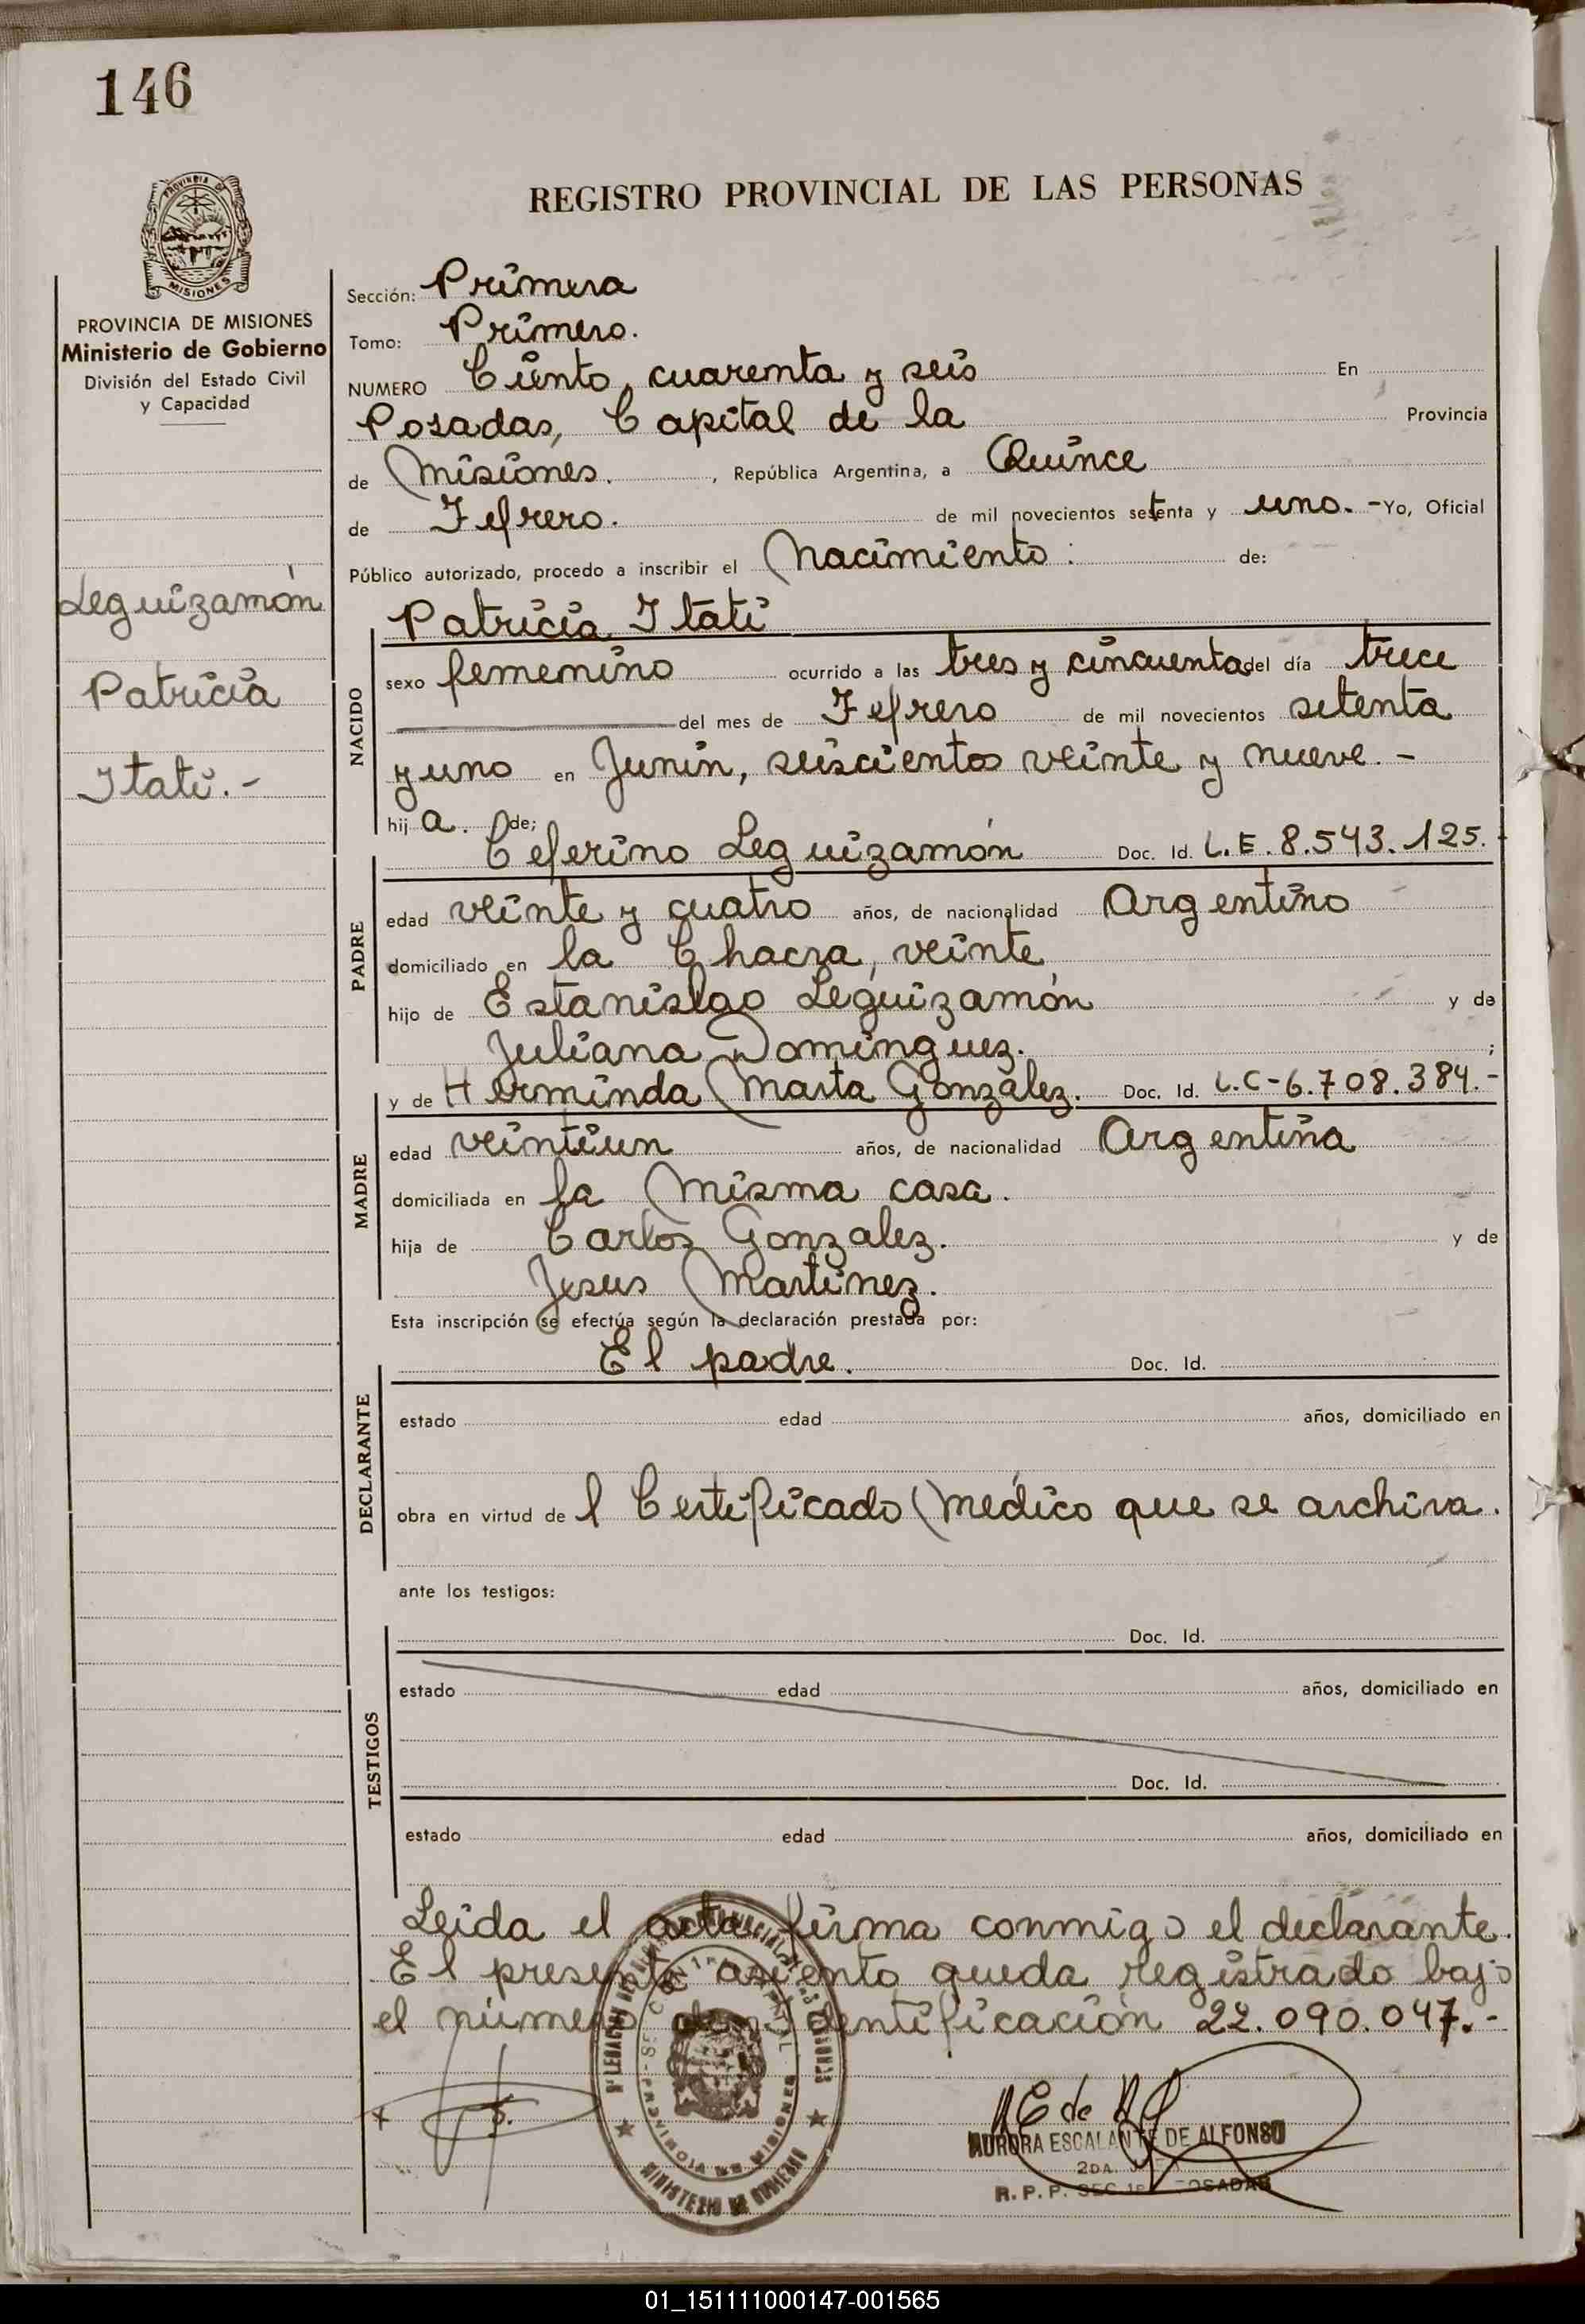 146
PROVINCIA DE
MISIONES
REGISTRO PROVINCIAL DE LAS PERSONAS
PROVINCIA DE MISIONES
Ministerio de Gobierno
División del Estado Civil
y Capacidad
Leguizamón
Patricia
Itatí.-
Sección: Primera
Tomo: Primero.
NUMERO Ciento, cuarenta y seis En
Posadas, Capital de la Provincia
de Misiones. , República Argentina, a Quince
de Febrero. de mil novecientos setenta y uno. - Yo, Oficial
Público autorizado, procedo a inscribir el Nacimiento: de:
Patricia Itatí
NACIDO
sexo femenino ocurrido a las tres y cincuenta del día trece
del mes de Febrero de mil novecientos setenta
y uno en Junín, seiscientos veinte y nueve. -
hij a. de;
Ceferino Leguizamón Doc. Id. L.E. 8.543.125.
PADRE
edad veinte y cuatro años, de nacionalidad Argentino
domiciliado en la Chacra, veinte
hijo de Estanislao Leguizamón y de
Juliana Domínguez. ;
y de Herminda Marta González. Doc. Id. L.C-6.708.384.-
MADRE
edad veintiun años, de nacionalidad Argentina
domiciliada en la misma casa.
hija de Carlos Gonzalez. y de
Jesus Martínez.
Esta inscripción se efectúa según la declaración prestada por:
El padre. Doc. Id.
DECLARANTE
estado edad años, domiciliado en
obra en virtud de l Certificado médico que se archiva.
ante los testigos:
Doc. Id.
TESTIGOS
estado edad años, domiciliado en
Doc. Id.
estado edad años, domiciliado en
Leída el acta firma conmigo el declarante.
El presente asiento queda registrado bajo
el número de identificación 22.090.047.-
MINISTERIO DE GOBIERNO
PROVINCIA DE MISIONES
AURORA ESCALANTE DE ALFONSO
2DA.
R.P.P. SEC. 1ª POSADAS
01_151111000147-001565